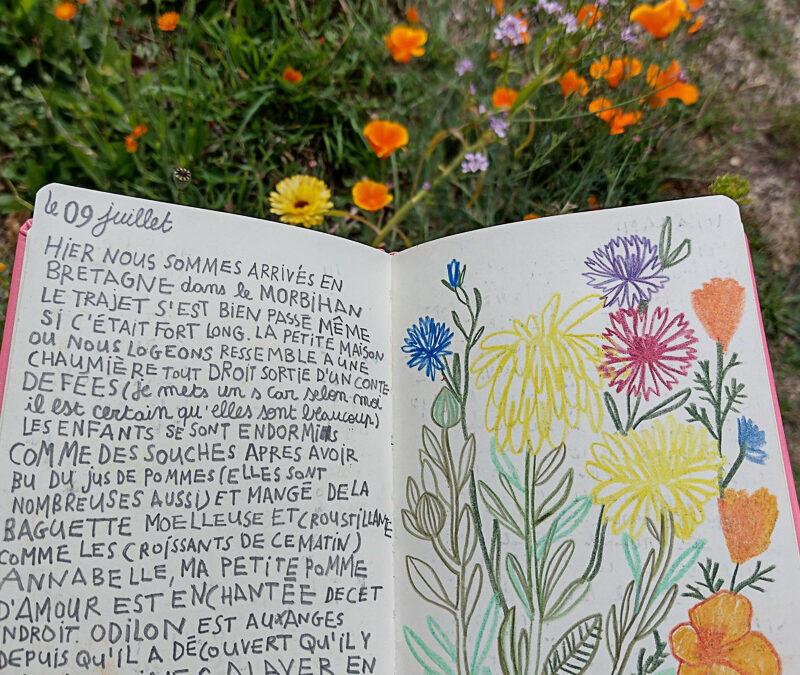 le 09 juillet
HIER NOUS SOMMES ARRIVÉS EN
BRETAGNE dans le MORBIHAN
LE TRAJET S'EST BIEN PASSÉ MÊME
SI C'ÉTAIT FORT LONG. LA PETITE MAISON
OU NOUS LOGEONS RESSEMBLE A UNE
CHAUMIÈRE TOUT DROIT SORTIE D'UN CONTE
DE FÉES (je mets un s car selon moi
il est certain qu'elles sont beaucoup)
LES ENFANTS SE SONT ENDORMIS
COMME DES SOUCHES APRES AVOIR
BU DU JUS DE POMMES (ELLES SONT
NOMBREUSES AUSSI) ET MANGÉ DE LA
BAGUETTE MOELLEUSE ET (CROUSTILLANTE
COMME LES CROISSANTS DE CE MATIN)
ANNABELLE, MA PETITE POMME
D'AMOUR EST ENCHANTÉE DE CET
ENDROIT. ODILON EST AUX ANGES
DEPUIS QU'IL A DÉCOUVERT QU'IL Y